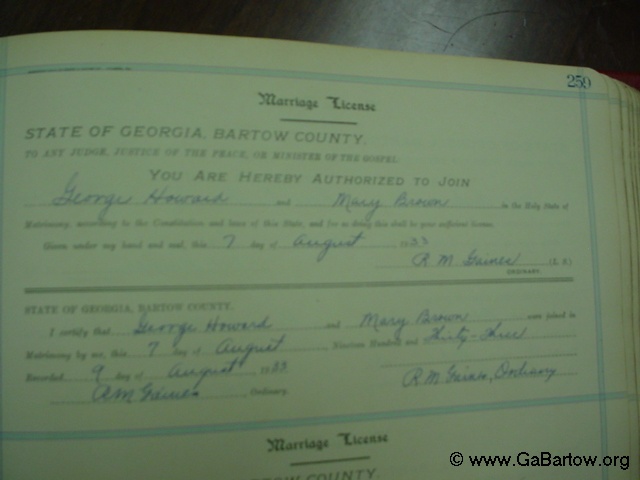 259
Marriage License
STATE OF GEORGIA, BARTOW COUNTY.
TO ANY JUDGE, JUSTICE OF THE PEACE, OR MINISTER OF THE GOSPEL:
YOU ARE HEREBY AUTHORIZED TO JOIN
George Howard and Mary Brown in the Holy State of
Matrimony, according to the Constitution and laws of this State, and for so doing this shall be your sufficient license.
Given under my hand and seal, this 7 day of August 1933
R M Gaines (L. S.)
ORDINARY.
STATE OF GEORGIA, BARTOW COUNTY.
I certify that George Howard and Mary Brown were joined in
Matrimony by me, this 7 day of August, Nineteen Hundred and Thirty-Three
Recorded 9 day of August 1933
R. M. Gaines, Ordinary
RM Gaines, Ordinary.
Marriage License
COUNTY.
© www.GaBartow.org